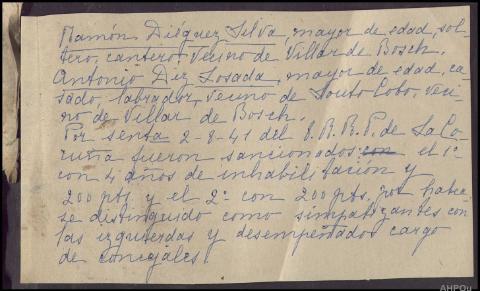 Ramón Diéguez Silva, mayor de edad, sol-
tero, cantero, vecino de Villar de Bosch.
Antonio Dez Losada, mayor de edad, ca-
sado, labrador, vecino de Souto Cobo, veci-
no de Villar de Bosch.
Por senta 2-8-41 del T.R.R.P. de La Co-
ruña fueron sancionados: con el 1º
con 4 años de inhabilitación y
200 pts, y el 2º con 200 pts, por haber-
se distinguido como simpatizantes con
las izquierdas y desempeñado cargo
de concejales.
AHPOu